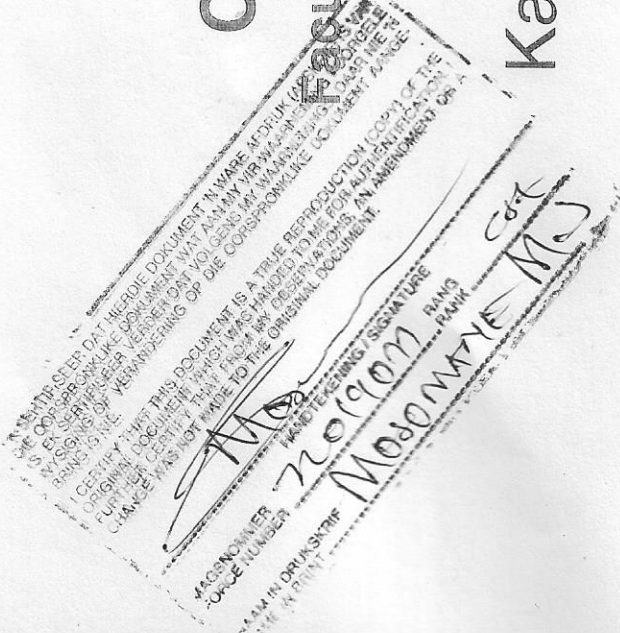 EK SERTIFISEER DAT HIERDIE DOKUMENT 'N WARE AFDRUK
DIE OORSPRONKLIKE DOKUMENT WAT AAN MY VIR
IS. EK SERTIFISEER VERDER DAT VOLGENS MY WAARNEMINGS, DAAR NIE 'N
WYSIGING OF VERANDERING OP DIE OORSPRONKLIKE DOKUMENT AANGE-
BRING IS NIE.
I CERTIFY THAT THIS DOCUMENT IS A TRUE REPRODUCTION (COPY) OF THE
ORIGINAL DOCUMENT WHICH WAS HANDED TO ME FOR AUTHENTIFICATION. I
FURTHER CERTIFY THAT FROM MY OBSERVATIONS, AN AMENDMENT OR A
CHANGE WAS NOT MADE TO THE ORIGINAL DOCUMENT.
HANDTEKENING / SIGNATURE
MAGSNOMMER
FORCE NUMBER
RANG
RANK
NAAM IN DRUKSKRIF MOSOMANE MJ
Facu
Ka